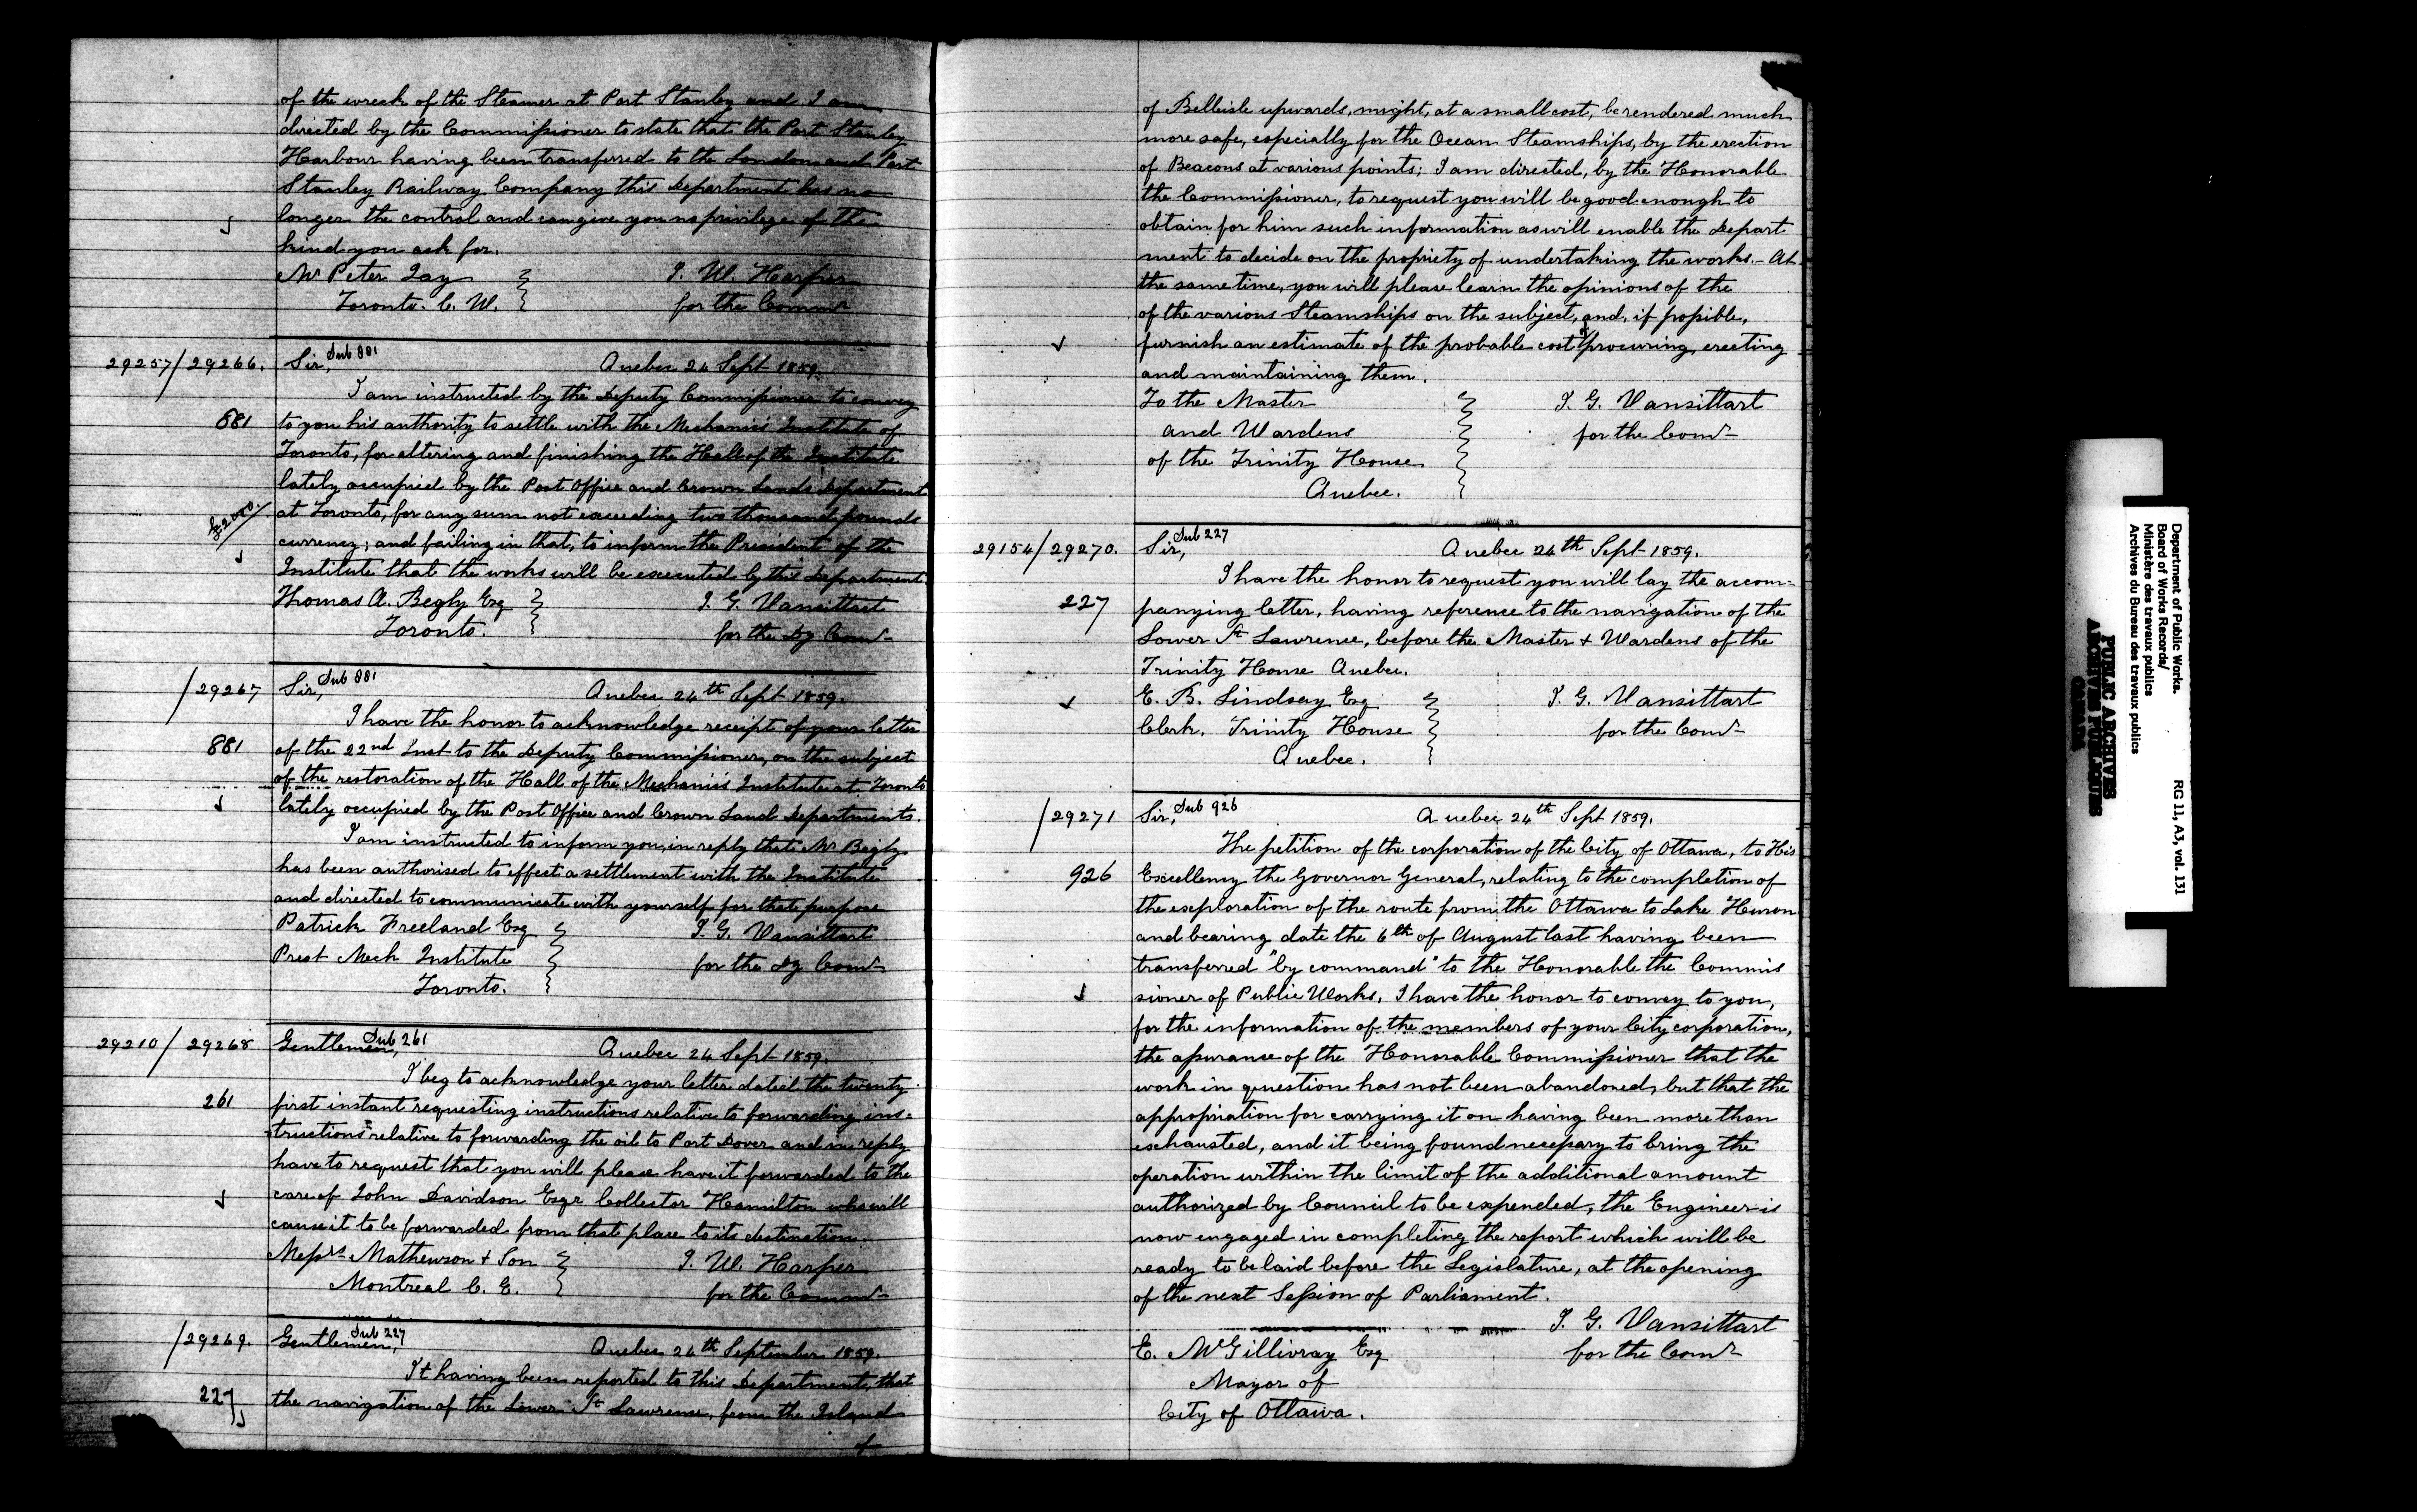 of the wreck of the Steamer at Port Stanley and I am
directed by the Commissioner to state that the Port Stanley
Harbour having been transferred to the London and Port
Stanley Railway Company this Department has no
longer the control and can give you no privilege of the
kind you ask for.
Mr Peter Jay J. W. Harper
Toronto. C. W. for the Commr
29257/29266. Sir, Sub 881 Quebec 24 Sept 1859.
I am instructed by the Deputy Commissioner to convey
881 to you his authority to settle with the Mechanics Institute of
Toronto, for altering and finishing the Hall of the Institute
lately occupied by the Post Office and Crown Lands Department
£2000 at Toronto, for any sum not exceeding two thousand pounds
currency; and failing in that, to inform the President of the
Institute that the works will be executed by this Department.
Thomas A. Begly Esq J. G. Vansittart
Toronto. for the Dy Comr
/29267 Sir, Sub 881 Quebec 24th Sept 1859.
I have the honor to acknowledge receipt of your letter
881 of the 22nd Inst to the Deputy Commissioner, on the subject
of the restoration of the Hall of the Mechanics Institute at Toronto
lately occupied by the Post Office and Crown Land Departments.
I am instructed to inform you, in reply that Mr Begly
has been authorised to effect a settlement with the Institute
and directed to communicate with yourself for that purpose
Patrick Freeland Esq J. G. Vansittart
Prest Mech Institute for the Dy Comr
Toronto.
29210/29268 Gentlemen, Sub 261 Quebec 24 Sept 1859.
I beg to acknowledge your letter dated the twenty
261 first instant requesting instructions relative to forwarding ins=
tructions relative to forwarding the oil to Port Dover and in reply
have to request that you will please have it forwarded to the
care of John Davidson Esqr Collector Hamilton who will
cause it to be forwarded from that place to its destination
Messrs Mathewson & Son J. W. Harper
Montreal C. E. for the Commr
/29269. Gentlemen, Sub 227 Quebec 24th September 1859.
It having been reported to this Department, that
227 the navigation of the Lower St Lawrence, from the Island
of
of Belleisle upwards, might, at a small cost, be rendered much
more safe, especially for the Ocean Steamships, by the erection
of Beacons at various points; I am directed, by the Honorable
the Commissioner, to request you will be good enough to
obtain for him such information as will enable the Depart
ment to decide on the propriety of undertaking the works. - At
the same time, you will please learn the opinions of the
of the various Steamships on the subject, and, if possible,
furnish an estimate of the probable cost of procuring, erecting
and maintaining them.
To the Master J. G. Vansittart
and Wardens for the Comr
of the Trinity House
Quebec.
29154/29270. Sir, Sub 227 Quebec 24th Sept 1859.
I have the honor to request you will lay the accom=
227 panying letter, having reference to the navigation of the
Lower St Lawrence, before the Master & Wardens of the
Trinity House Quebec.
E. B. Lindsay Esq J. G. Vansittart
Clerk. Trinity House for the Comr
Quebec.
/29271 Sir, Sub 926 Quebec 24th Sept 1859.
The petition of the corporation of the City of Ottawa, to His
926 Excellency the Governor General, relating to the completion of
the exploration of the route from the Ottawa to Lake Huron
and bearing date the 6th of August last having been
transferred "by command" to the Honorable the Commis
sioner of Public Works, I have the honor to convey to you,
for the information of the members of your City corporation,
the assurance of the Honorable Commissioner that the
work in question has not been abandoned, but that the
appropriation for carrying it on having been more than
exhausted, and it being found necessary to bring the
operation within the limit of the additional amount
authorized by Council to be expended, the Engineer is
now engaged in completing the report which will be
ready to be laid before the Legislature, at the opening
of the next Session of Parliament.
J. G. Vansittart
E. McGillivray Esq for the Comr
Mayor of
City of Ottawa.
Department of Public Works.
Board of Works Records/
Ministère des travaux publics
Archives du Bureau des travaux publics
RG 11, A3, vol. 131
PUBLIC ARCHIVES
ARCHIVES PUBLIQUES
CANADA